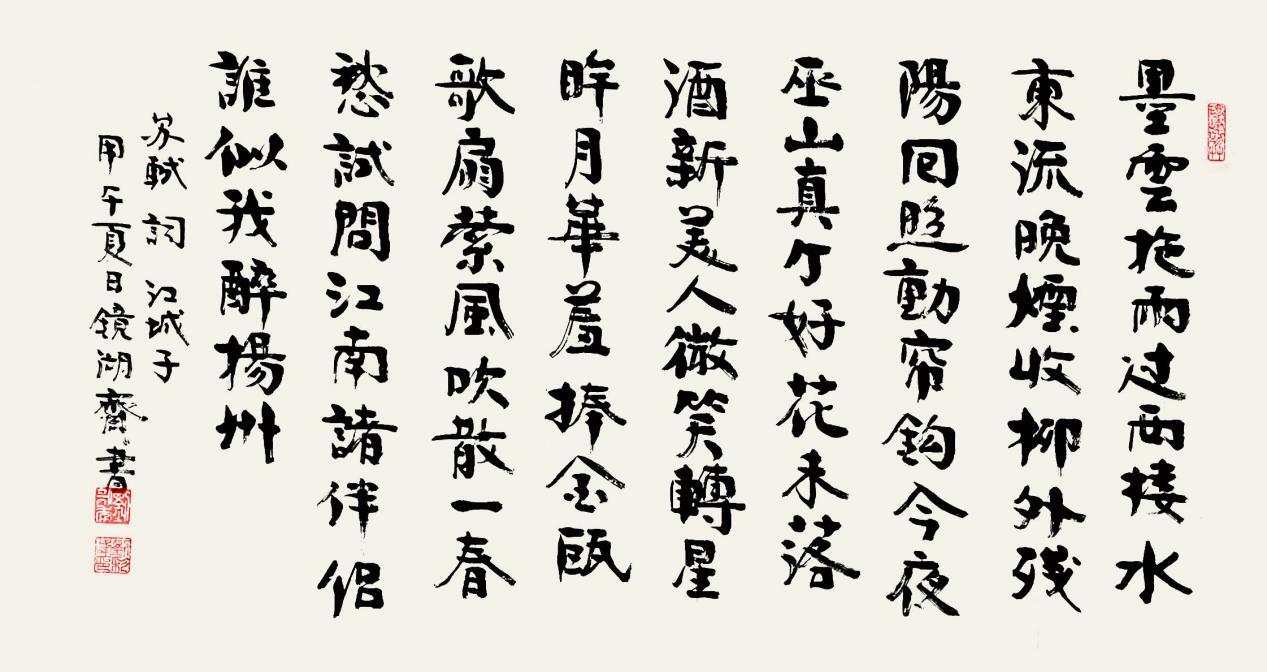 墨雲拖雨过西楼水
東流晚煙收柳外残
陽回照動帘鈎今夜
巫山真个好花未落
酒新美人微笑轉星
眸月華羞捧金瓯
歌扇萦風吹散一春
愁試問江南諸伴侶
誰似我醉揚州
苏軾詞 江城子
甲午夏日鏡湖齋書